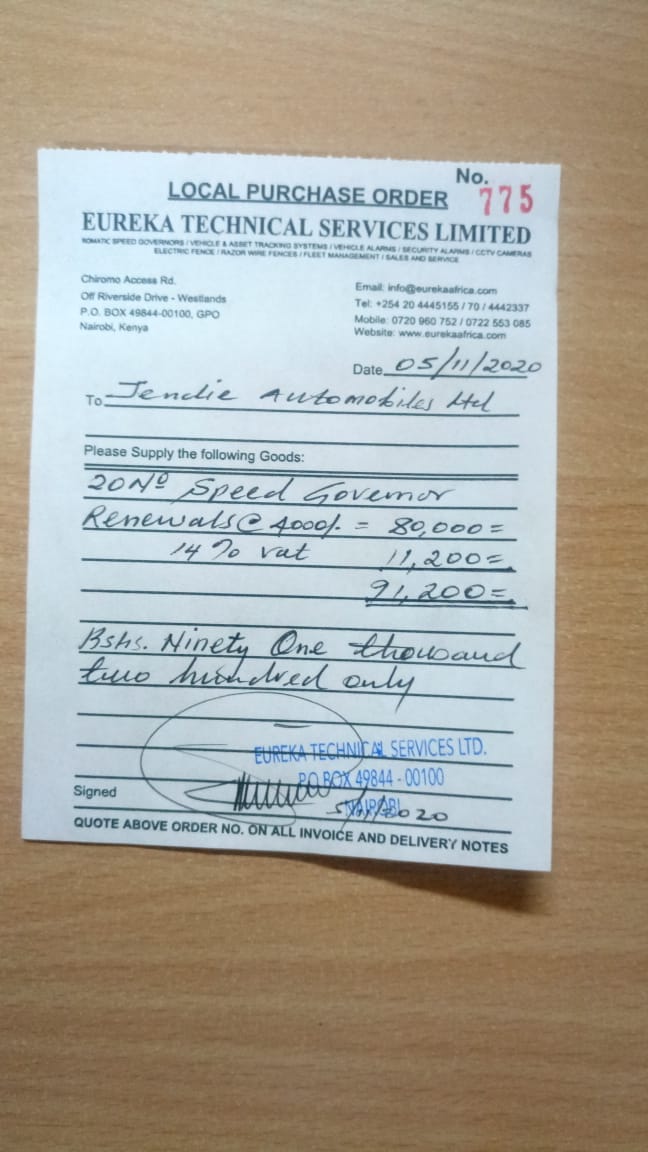 No. 775
LOCAL PURCHASE ORDER
EUREKA TECHNICAL SERVICES LIMITED
ROMATIC SPEED GOVERNORS / VEHICLE & ASSET TRACKING SYSTEMS / VEHICLE ALARMS / SECURITY ALARMS / CCTV CAMERAS
ELECTRIC FENCE / RAZOR WIRE FENCES / FLEET MANAGEMENT / SALES AND SERVICE
Chiromo Access Rd.
Off Riverside Drive - Westlands
P.O. BOX 49844-00100, GPO
Nairobi, Kenya
Email: info@eurekaafrica.com
Tel: +254 20 4445155 / 70 / 4442337
Mobile: 0720 960 752 / 0722 553 085
Website: www.eurekaafrica.com
Date 05/11/2020
To Jendie Automobiles Ltd
Please Supply the following Goods:
20 Nº Speed Governor
Renewals @ 4000/- = 80,000=
14% vat 11,200=
91,200=
Kshs. Ninety One thousand
two hundred only
EUREKA TECHNICAL SERVICES LTD.
P.O BOX 49844 - 00100
NAIROBI
Signed 5/11/2020
QUOTE ABOVE ORDER NO. ON ALL INVOICE AND DELIVERY NOTES